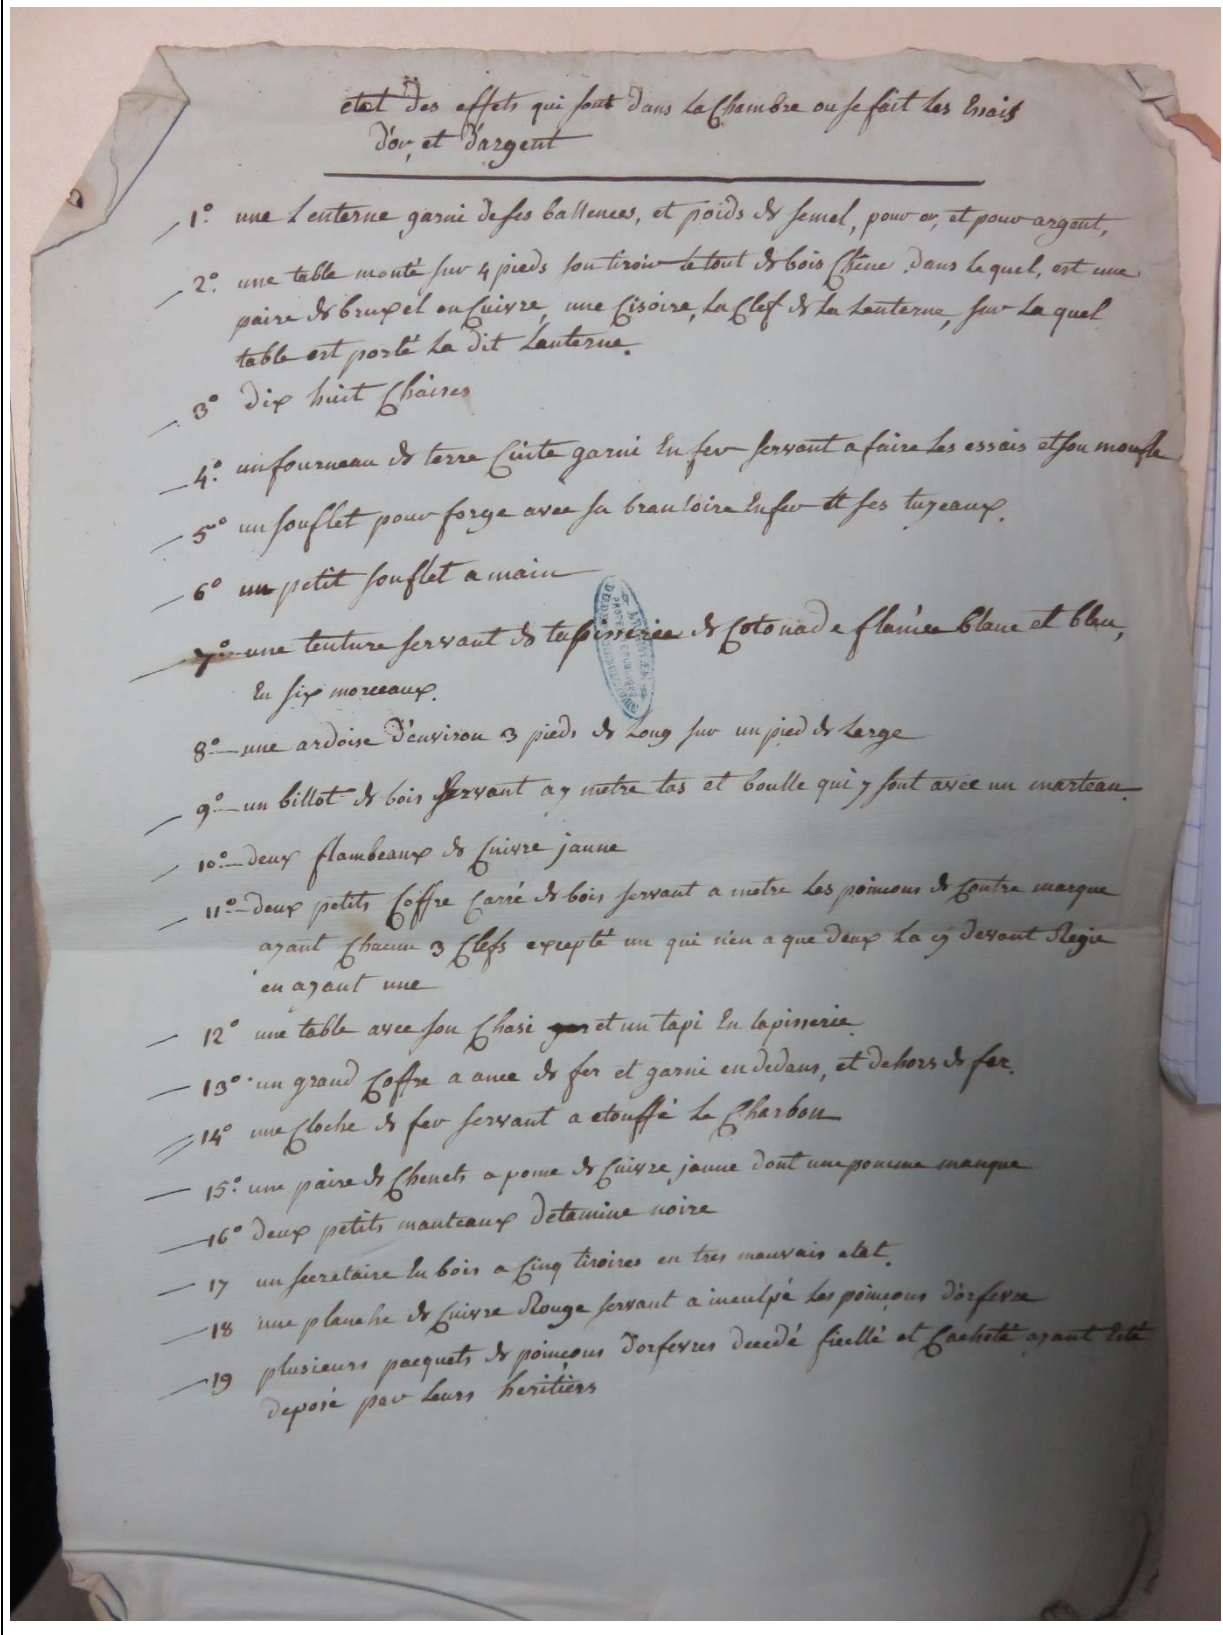 etat des effets qui sont dans La Chambre ou se fait Les Essais
d'or, et d'argent
1º. une Lenterne garni de ses ballences, et poids de semel, pour or, et pour argent,
2º. une table monté sur 4 pieds son tiroir le tout de bois Chêne. Dans le quel, est une
paire de bruxel en Cuivre, une Cisoire, La Clef de La Lenterne, sur La quel
table est porté La dit Lanterne.
3º dix huit Chaises
4º. un fourneau de terre Cuite garni En fer servant a faire Les essais et son moufle
5º un souflet pour forge avec sa branloire En fer et ses tuyeaux.
6º un petit souflet a main
7º une tenture servant de tapisserie de Cotonade flamée blanc et bleu,
En six morceaux.
8º une ardoise d'environ 3 pieds de Long sur un pied de Large
9º un billot de bois servant a y metre tas et boulle qui y sont avec un marteau.
10º deux flambeaux de Cuivre jaune
11º deux petits Coffre Carré de bois servant a metre Les poincons de Contre marque
ayant Chacun 3 Clefs excepté un qui n'en a que deux La cy devant Regie
en ayant une
12º une table avec son Chasi et un tapi En tapisserie
13º un grand Coffre a ance de fer et garni en dedans, et dehors de fer.
14º une Cloche de fer servant a etouffé Le Charbon
15º. une paire de Chenets a pome de Cuivre jaune dont une pomme manque
16º deux petits manteaux detamine noire
17 un secretaire En bois a Cinq tiroires en tres mauvais etat.
18 une planche de Cuivre Rouge servant a inculpé Les poinçons d'orfevre
19 plusieurs pacquets de poinçons d'orfevres decedé ficellé et Cacheté ayant Eté
deposé par Leurs heritiers